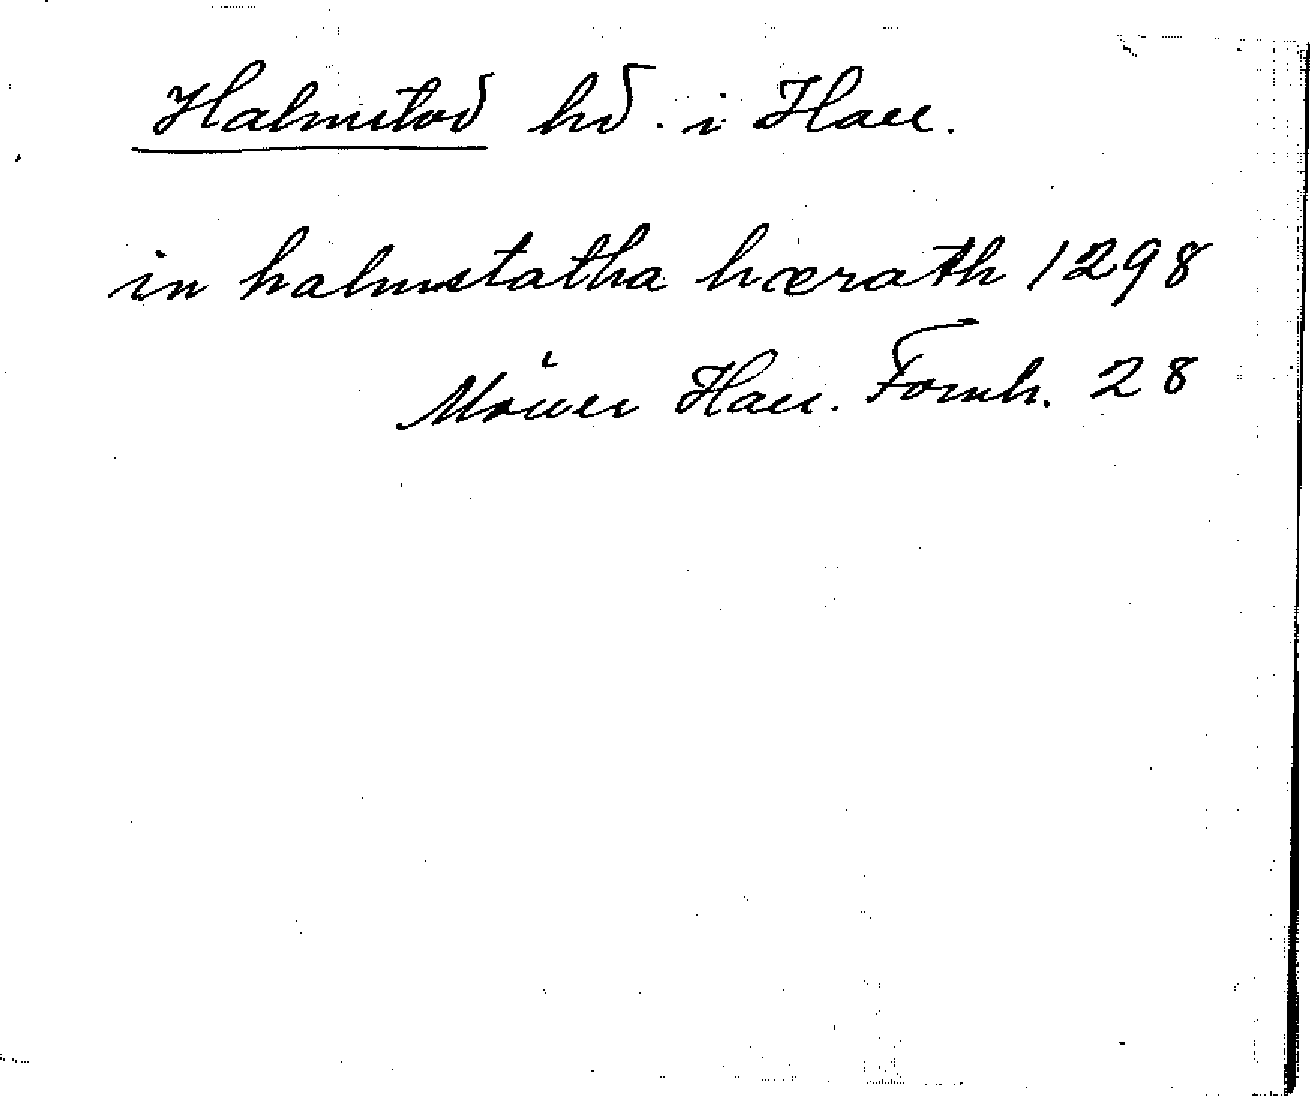 Halmstad hd. i Hall.
in halmstatha hærath 1298
Hall. Fornh. 28